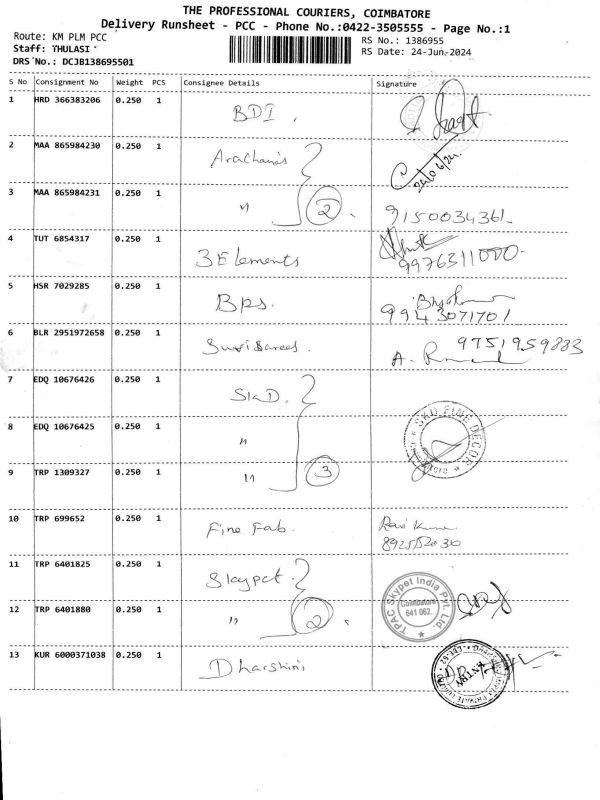 THE PROFESSIONAL COURIERS, COIMBATORE
Delivery Runsheet - PCC - Phone No.:0422-3505555 - Page No.:1
Route: KM PLM PCC
RS No.: 1386955
Staff: THULASI
RS Date: 24-Jun-2024
DRS No.: DCJB138695501
S No Consignment No Weight PCS Consignee Details Signature
1 HRD 366383206 0.250 1 BDI.
2 MAA 865984230 0.250 1 24/06/24
3 MAA 865984231 0.250 1 " 2. 9150034361
4 TUT 6854317 0.250 1 3 Elements 9976311000
5 HSR 7029285 0.250 1 BPS. 9943071701
6 BLR 2951972658 0.250 1 9751959883
7 EDQ 10676426 0.250 1 SKD.
8 EDQ 10676425 0.250 1 " SKD FINE DECOR
9 TRP 1309327 0.250 1 " 3
10 TRP 699652 0.250 1 Fine Fab. Ravi Kumar
11 TRP 6401825 0.250 1 Skypet
12 TRP 6401880 0.250 1 " 2. TPAC Skypet India Pvt. Ltd. Coimbatore 641 062.
13 KUR 6000371038 0.250 1 Dharshini ENTRY